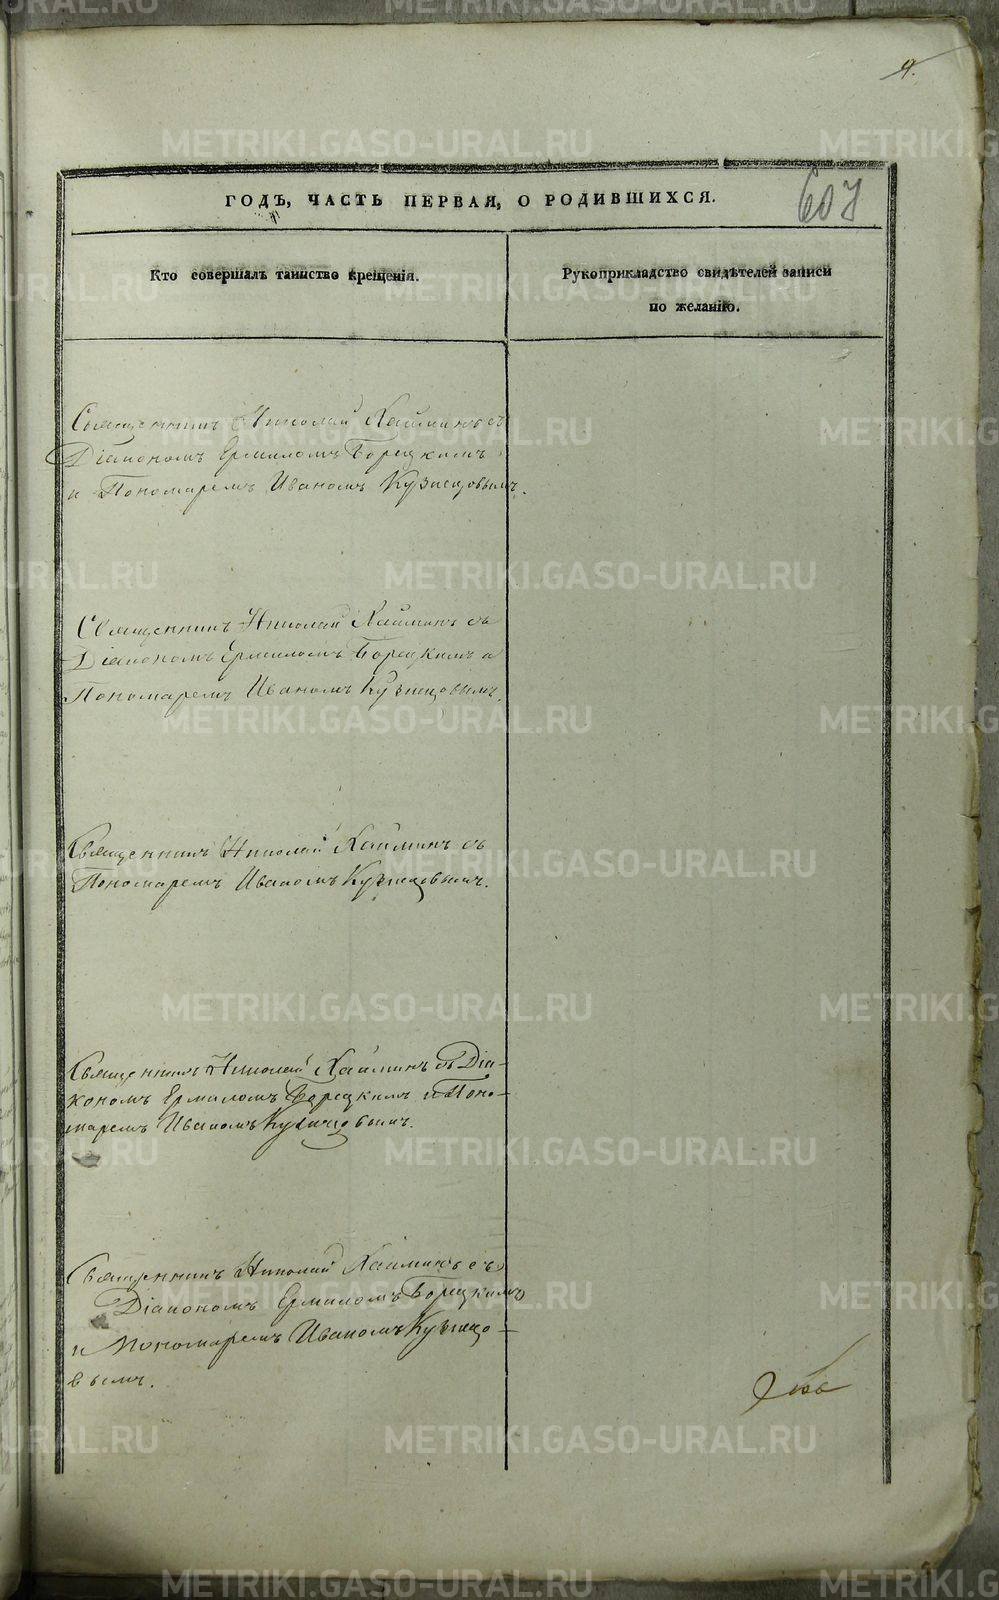 9.
607
ГОДЪ, ЧАСТЬ ПЕРВАЯ, О РОДИВШИХСЯ.
Кто совершалъ таинство крещенія.
Рукоприкладство свидѣтелей записи
по желанію.
Священникъ Николай Хайминъ съ
Діакономъ Ермиломъ Борецкимъ
и Пономаремъ Иваномъ Кузнецовымъ.
Священникъ Николай Хайминъ съ
Діакономъ Ермиломъ Борецкимъ и
Пономаремъ Иваномъ Кузнецовымъ.
Священникъ Николай Хайминъ съ
Пономаремъ Иваномъ Кузнецовымъ.
Священникъ Николай Хайминъ съ Діа-
кономъ Ермиломъ Борецкимъ и Поно-
маремъ Иваномъ Кузнецовымъ.
Священникъ Николай Хайминъ съ
Діакономъ Ермиломъ Борецкимъ
и Пономаремъ Иваномъ Кузнецо-
вымъ.
METRIKI.GASO-URAL.RU